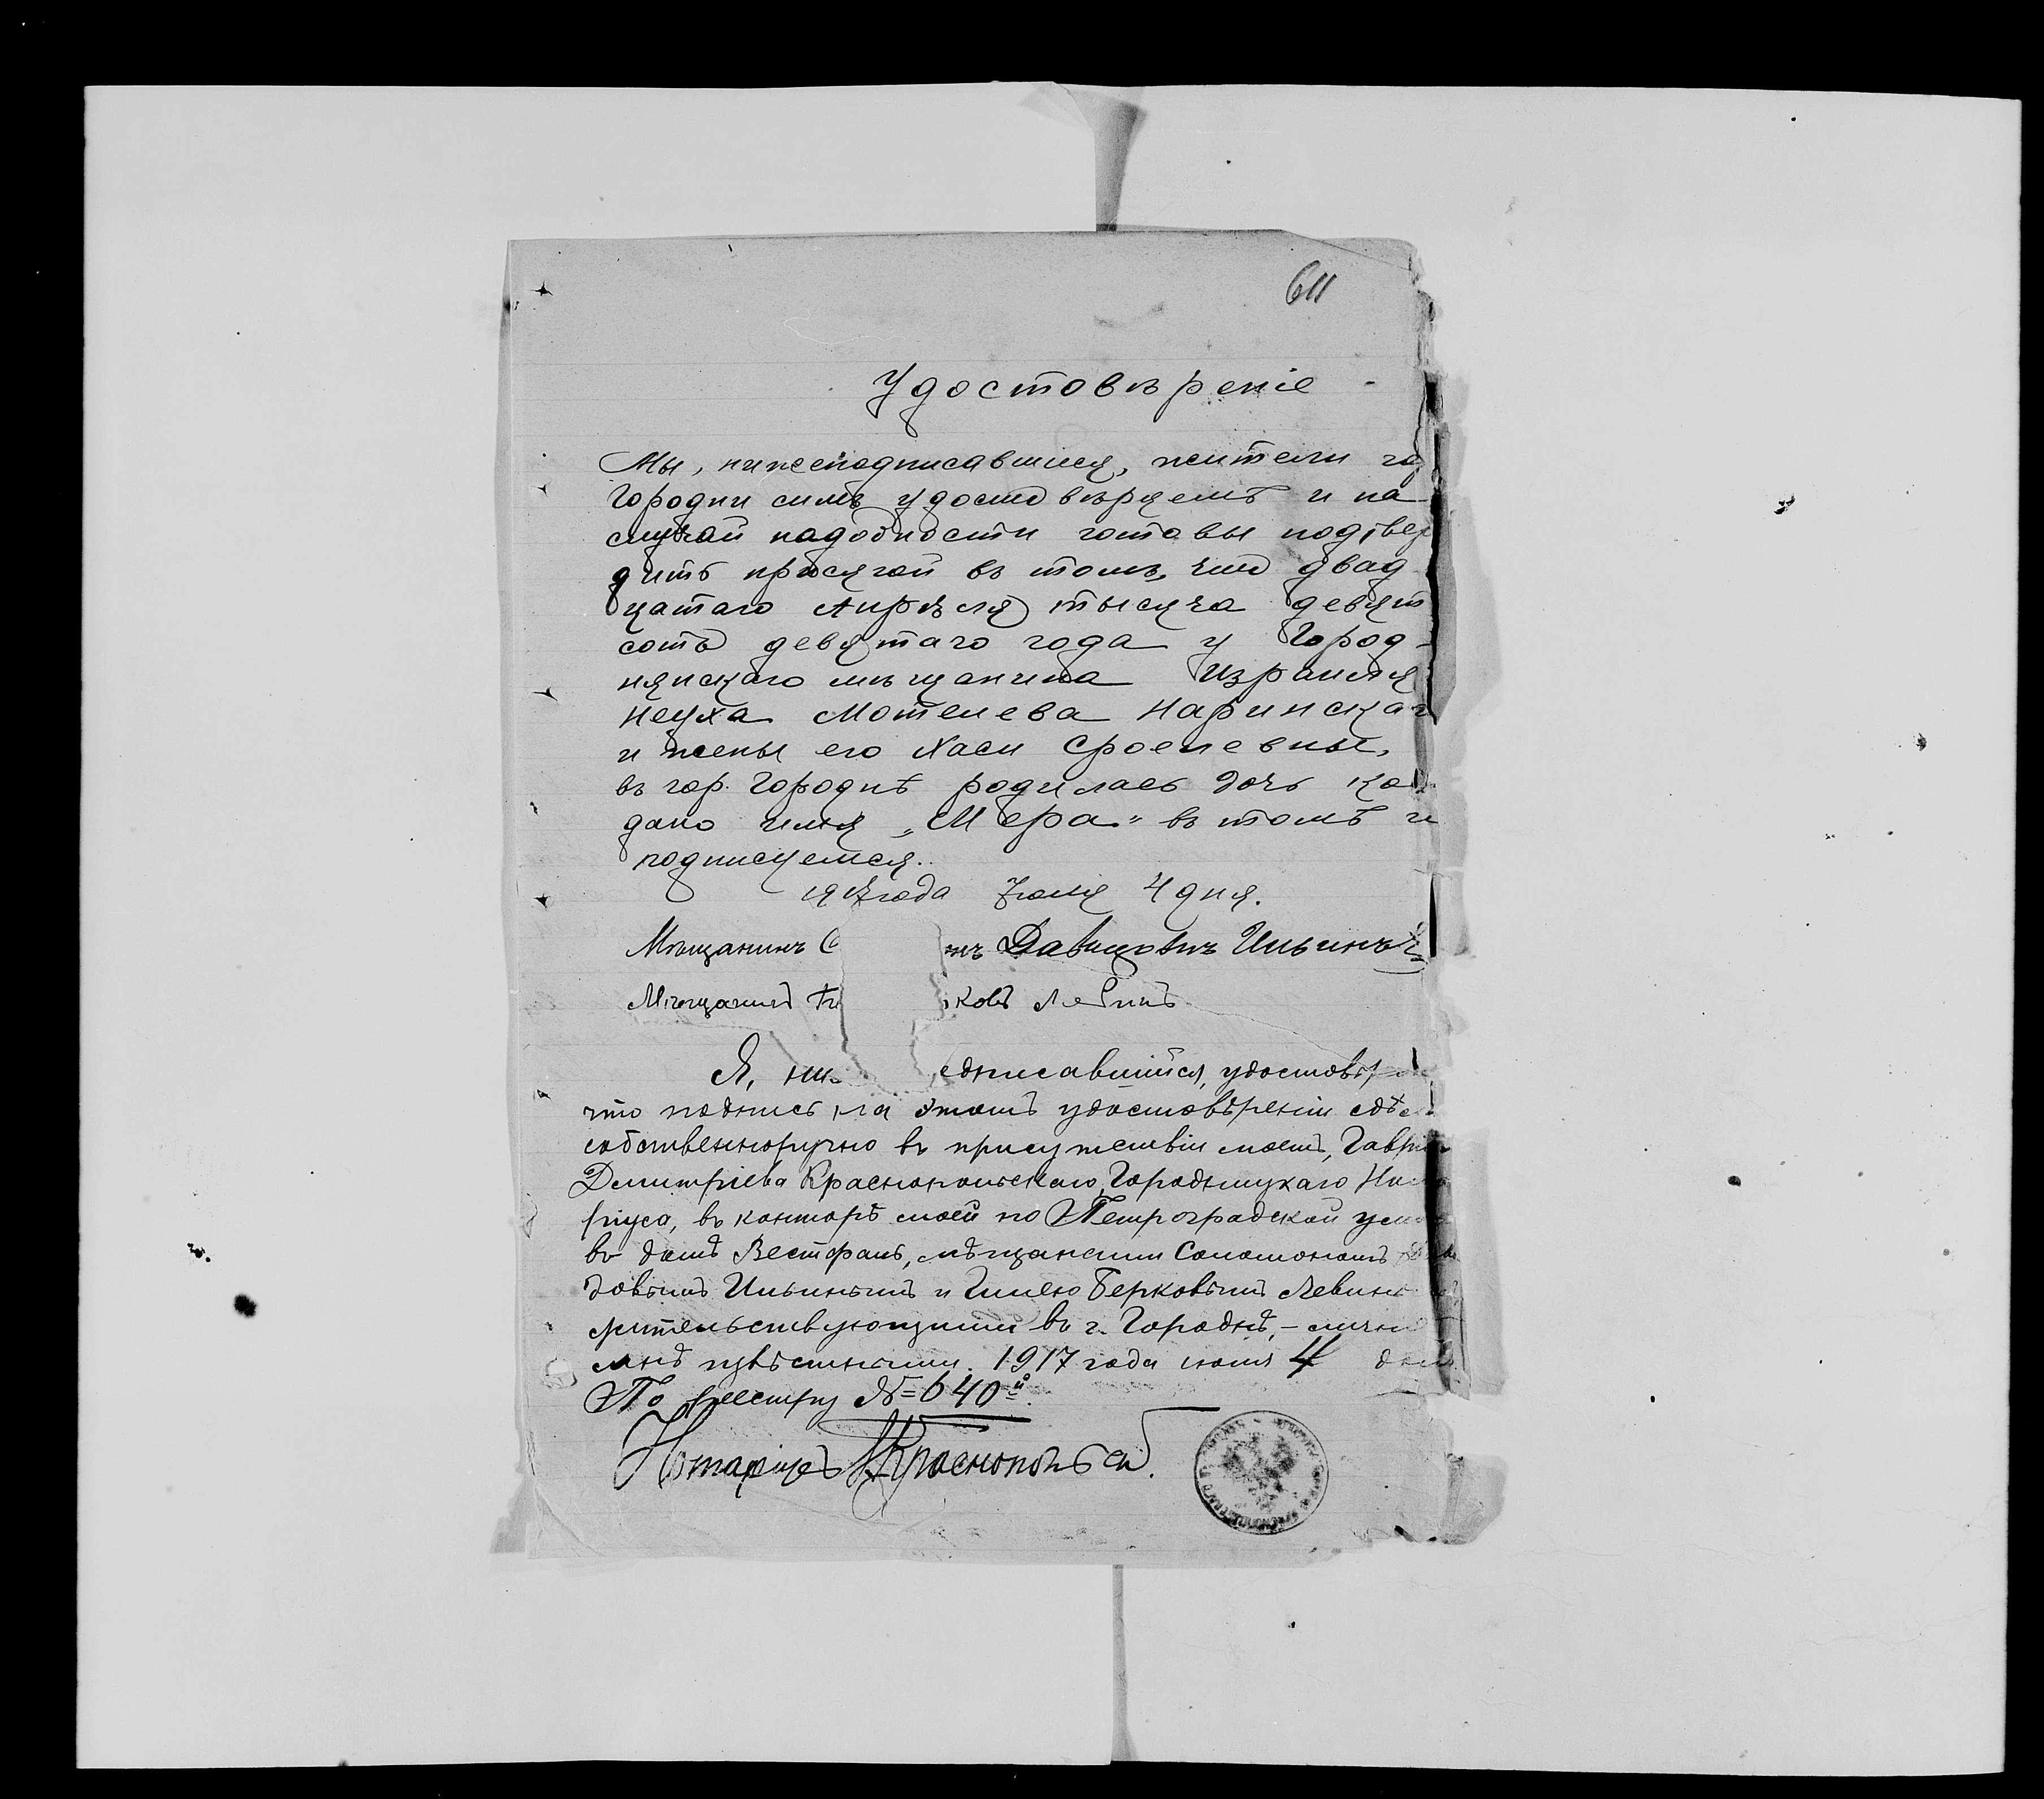 611
Удостовѣреніе
Мы, нижеподписавшиеся, жители го
Городни симъ удостовѣряемъ и на
случай надобности готовы подтвер
дить присягой въ томъ, что двад
цатаго Апрѣля тысяча девят
сотъ девятаго года у Город-
нянскаго мѣщанина Израиля
Неуха Мотелева Наринскаг
и жены его Хаси Сроелевны,
въ гор. Городнѣ родилась дочь ко
дано имя „Мера" въ томъ и
подписуемся.
1917 года Іюля 4 дня.
Мѣщанинъ С нъ Давидовичъ Ильинъ
Мѣщанинъ Ги ковъ Левинъ
Я, ни одписавшійся, удостовѣр
что подпись на этомъ удостовѣреніи сдѣл
собственноручно въ присутствіи моемъ, Гаврі
Дмитріева Краснопольскаго, Городницкаго Но
ріуса, въ конторѣ моей по Петроградской ули
въ домѣ Вестфаль, мѣщанами Соломономъ
довымъ Ильинымъ и Гилею Берковымъ Левины
жительствующими въ г. Городнѣ, - лично
мнѣ извѣстными. 1917 года іюля 4 дня
По реестру № 640й.
Нотаріусъ Краснопольскій.